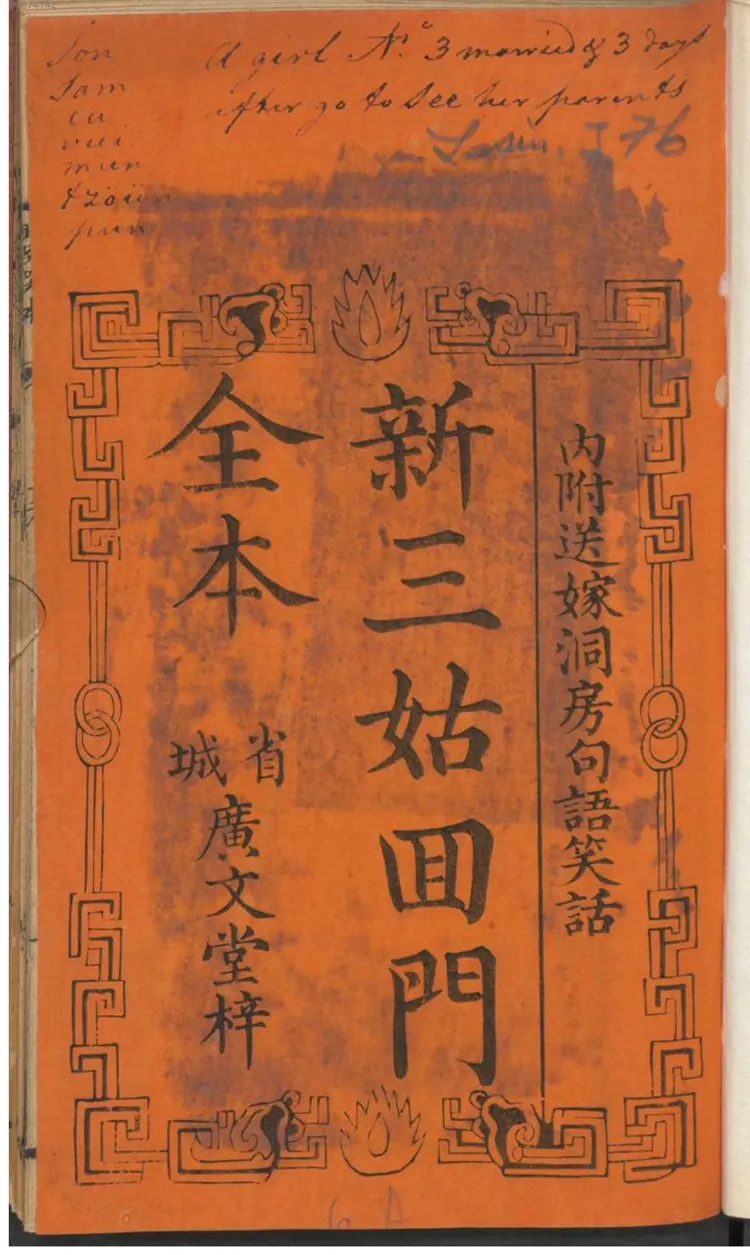 Son
Sam
cu
vui
mun
tzoün
pun
A girl Nº 3 married & 3 days
after go to see her parents
L. sin. I 76
內附送嫁洞房句語笑話
新三姑囬門
全本
省城
廣文堂梓
6 A